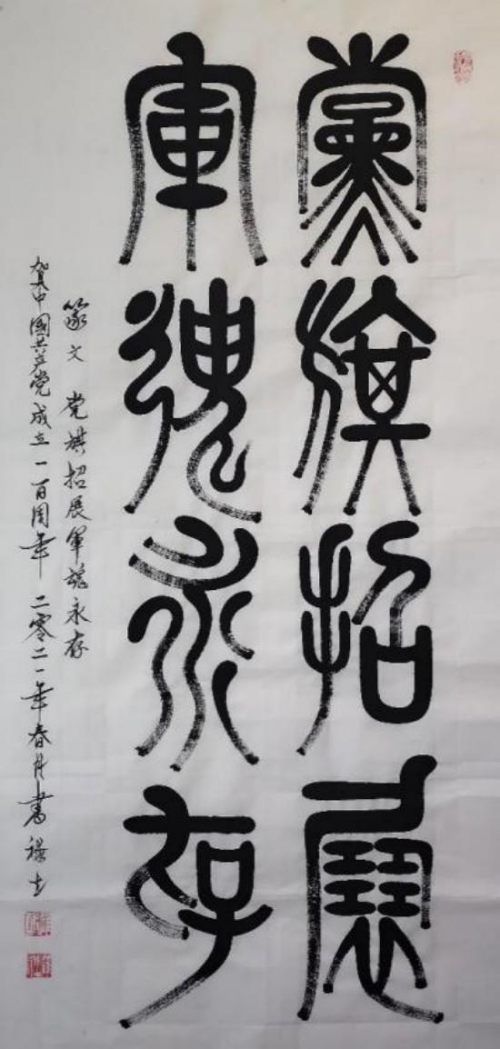 黨旗招展
軍魂永存
篆文 党旗招展軍魂永存
贺中國共产党成立一百周年 二零二一年春月書